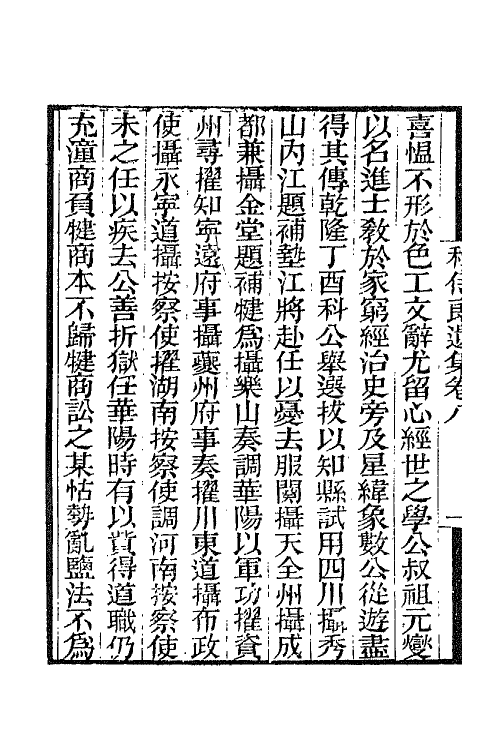 喜慍不形於色工文辭尤留心經世之學公叔祖元燮
以名進士敎於家窮經治史旁及星緯象數公從遊盡
得其傳乾隆丁酉科公舉選拔以知縣試用四川攝秀
山內江題補墊江將赴任以憂去服闋攝天全州攝成
都兼攝金堂題補犍爲攝樂山奏調華陽以軍功擢資
州尋擢知寧遠府事攝夔州府事奏擢川東道攝布政
使攝永寧道攝按察使擢湖南按察使調河南按察使
未之任以疾去公善折獄任華陽時有以貲得道職仍
充潼商負犍商本不歸犍商訟之某怙勢亂鹽法不爲